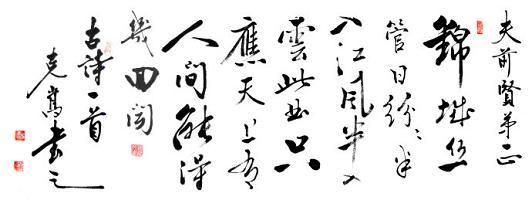 夫前賢弟正
錦城絲
管日紛〻半
入江風半入
雲此曲只
應天上有
人間能得
幾回聞
古詩一首
克嵩書之